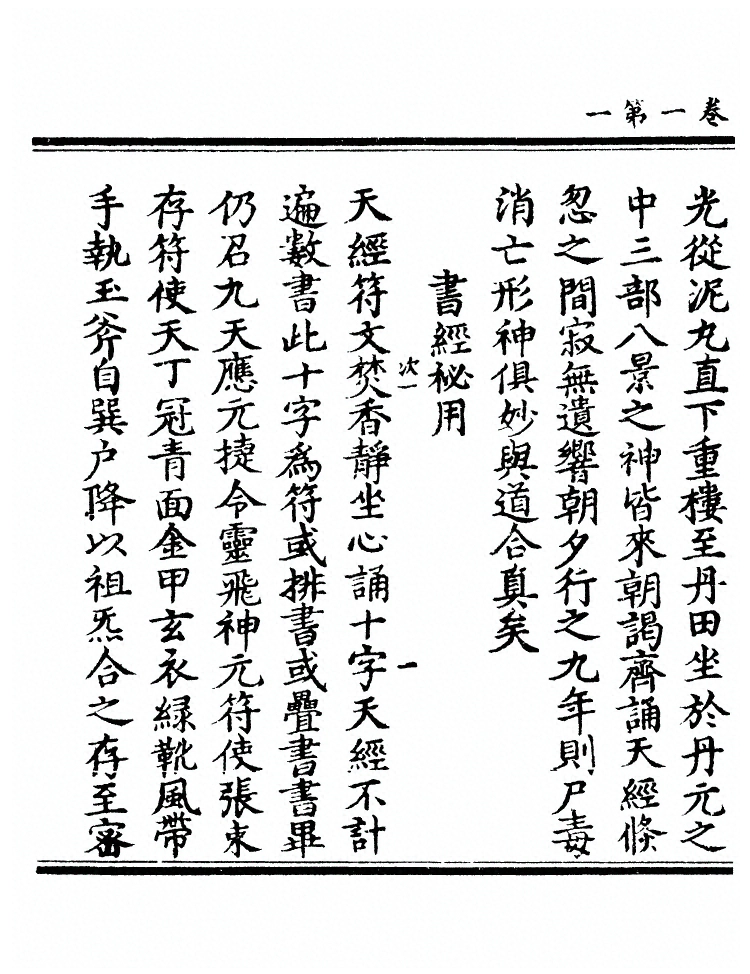 卷一第一
光從泥丸直下重樓至丹田坐於丹元之
中三部八景之神皆來朝謁齊誦天經倐
忽之間寂無遺響朝夕行之九年則尸毒
消亡形神俱妙與道合真矣
書經秘用
天經符文焚香靜坐心誦十字天經不計
次一
一
遍數書此十字為符或排書或疊書書畢
仍召九天應元捷令靈飛神元符使張束
存符使天丁冠青面金甲玄衣緑靴風帶
手執玉斧自巽户降以祖炁合之存至審